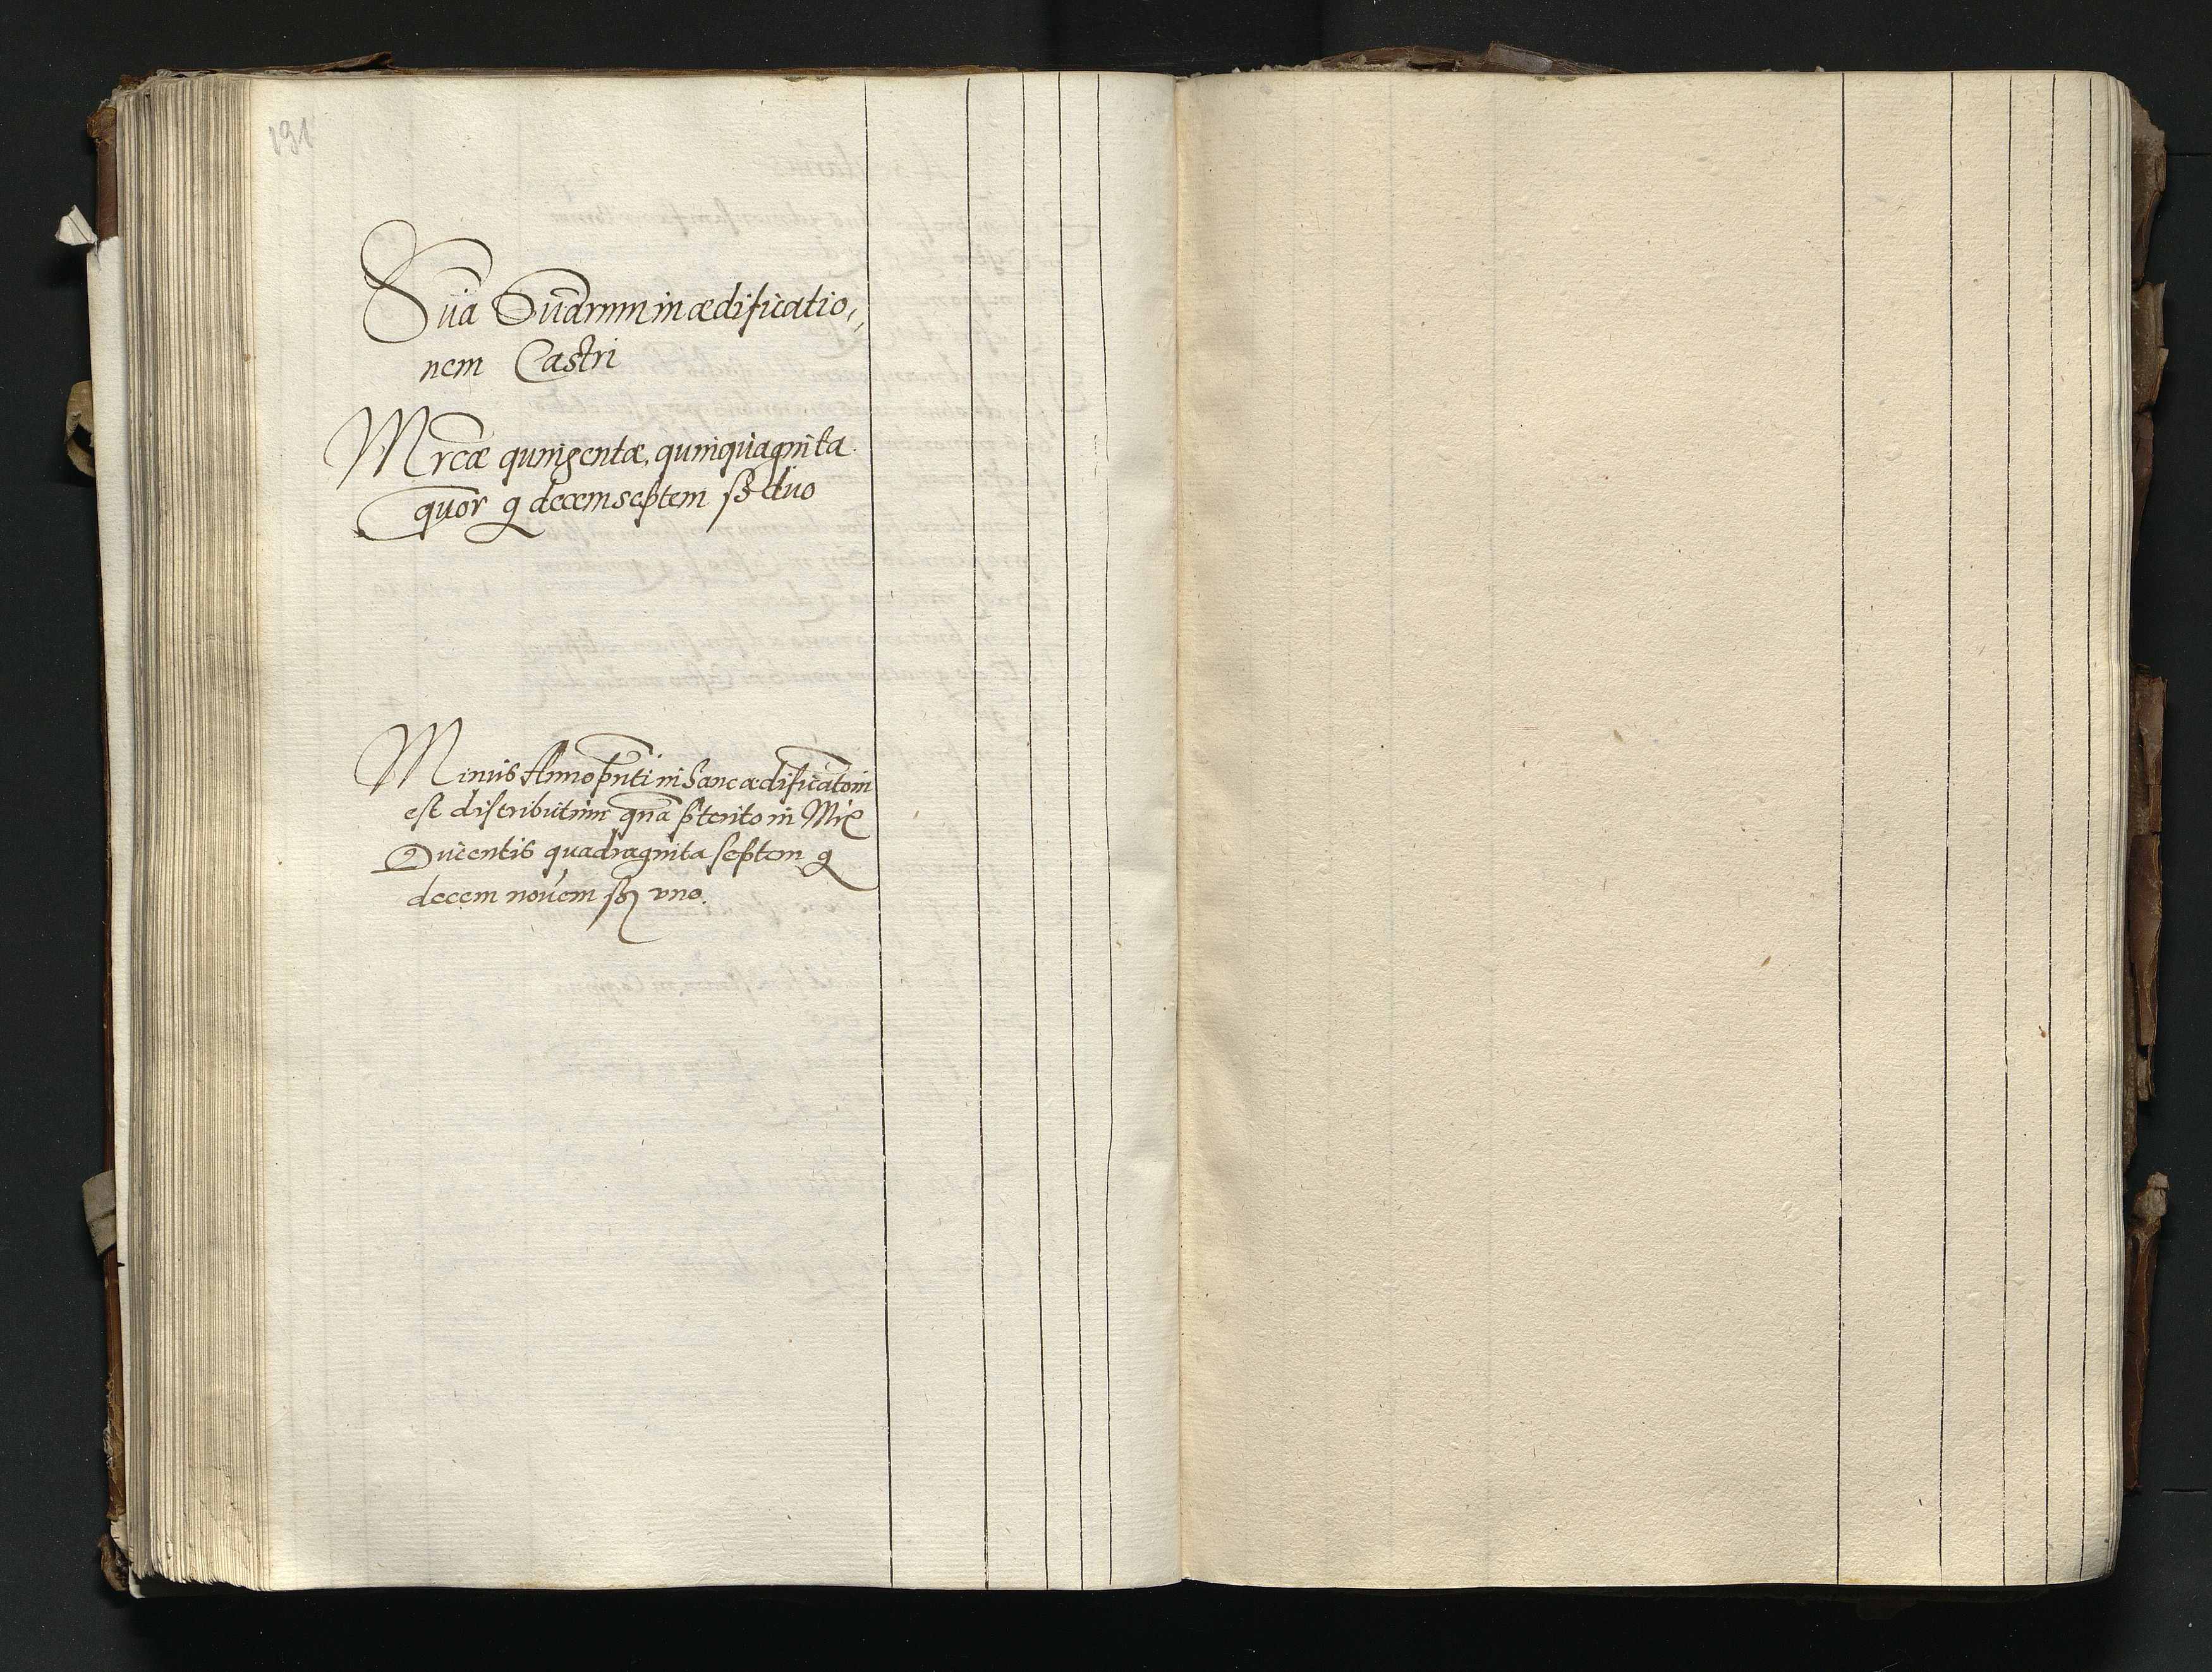 191
Sūa Suārum in ædificatio„
nem Castri
Mrcæ quingentæ, quinquaginta
quōr g decem septem ß duo
Minus Anno pn̄ti in hanc ædificātoin
est distributum quā p̄terito in Mrc
Ducentis quadraginta septem g
decem novem ß uno.